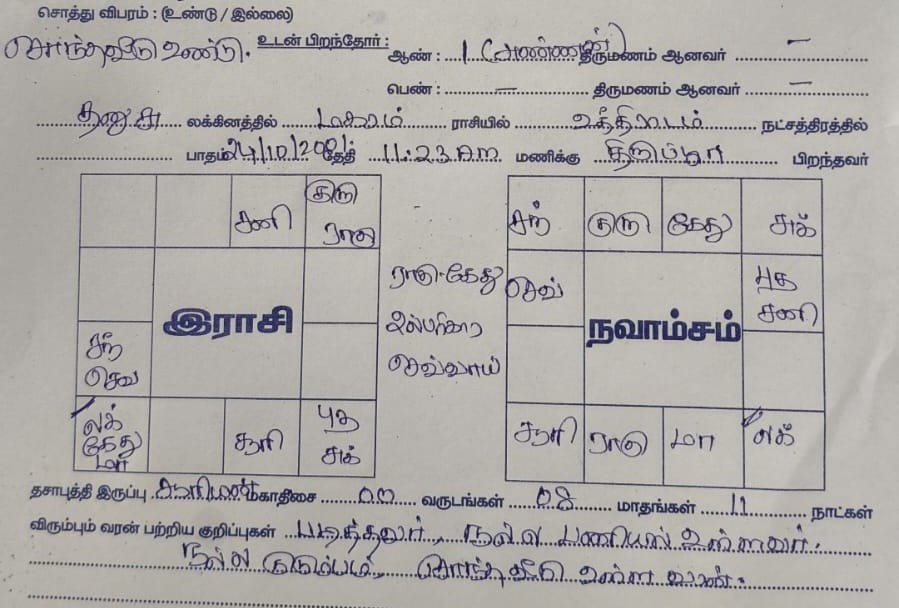 சொத்து விபரம் : (உண்டு / இல்லை)
சொந்தவீடு உண்டு. உடன் பிறந்தோர் : ஆண் : 1 (அண்ணன்) திருமணம் ஆனவர் –
பெண் : – திருமணம் ஆனவர் –
தனுசு லக்கினத்தில் மகரம் ராசியில் உத்திராடம் நட்சத்திரத்தில்
பாதம் 24/10/2001 தேதி 11:23 A.m மணிக்கு பிறந்தவர்
சனி
குரு
ராகு
இராசி
சந்
செவ்
லக்
கேது
மா
சூரி
புத
சுக்
ராகு-கேது
செவ்வாய்
சந்
குரு
கேது
சுக்
செவ்
புத
சனி
நவாம்சம்
சூரி
ராகு
மா
லக்
தசாபுத்தி இருப்பு சூரியன் மகாதிசை 00 வருடங்கள் 08 மாதங்கள் 11 நாட்கள்
விரும்பும் வரன் பற்றிய குறிப்புகள் படித்தவர், நல்ல பணியில் உள்ளவர்.
நல்ல குடும்பம், சொந்த வீடு உள்ள வரன்.